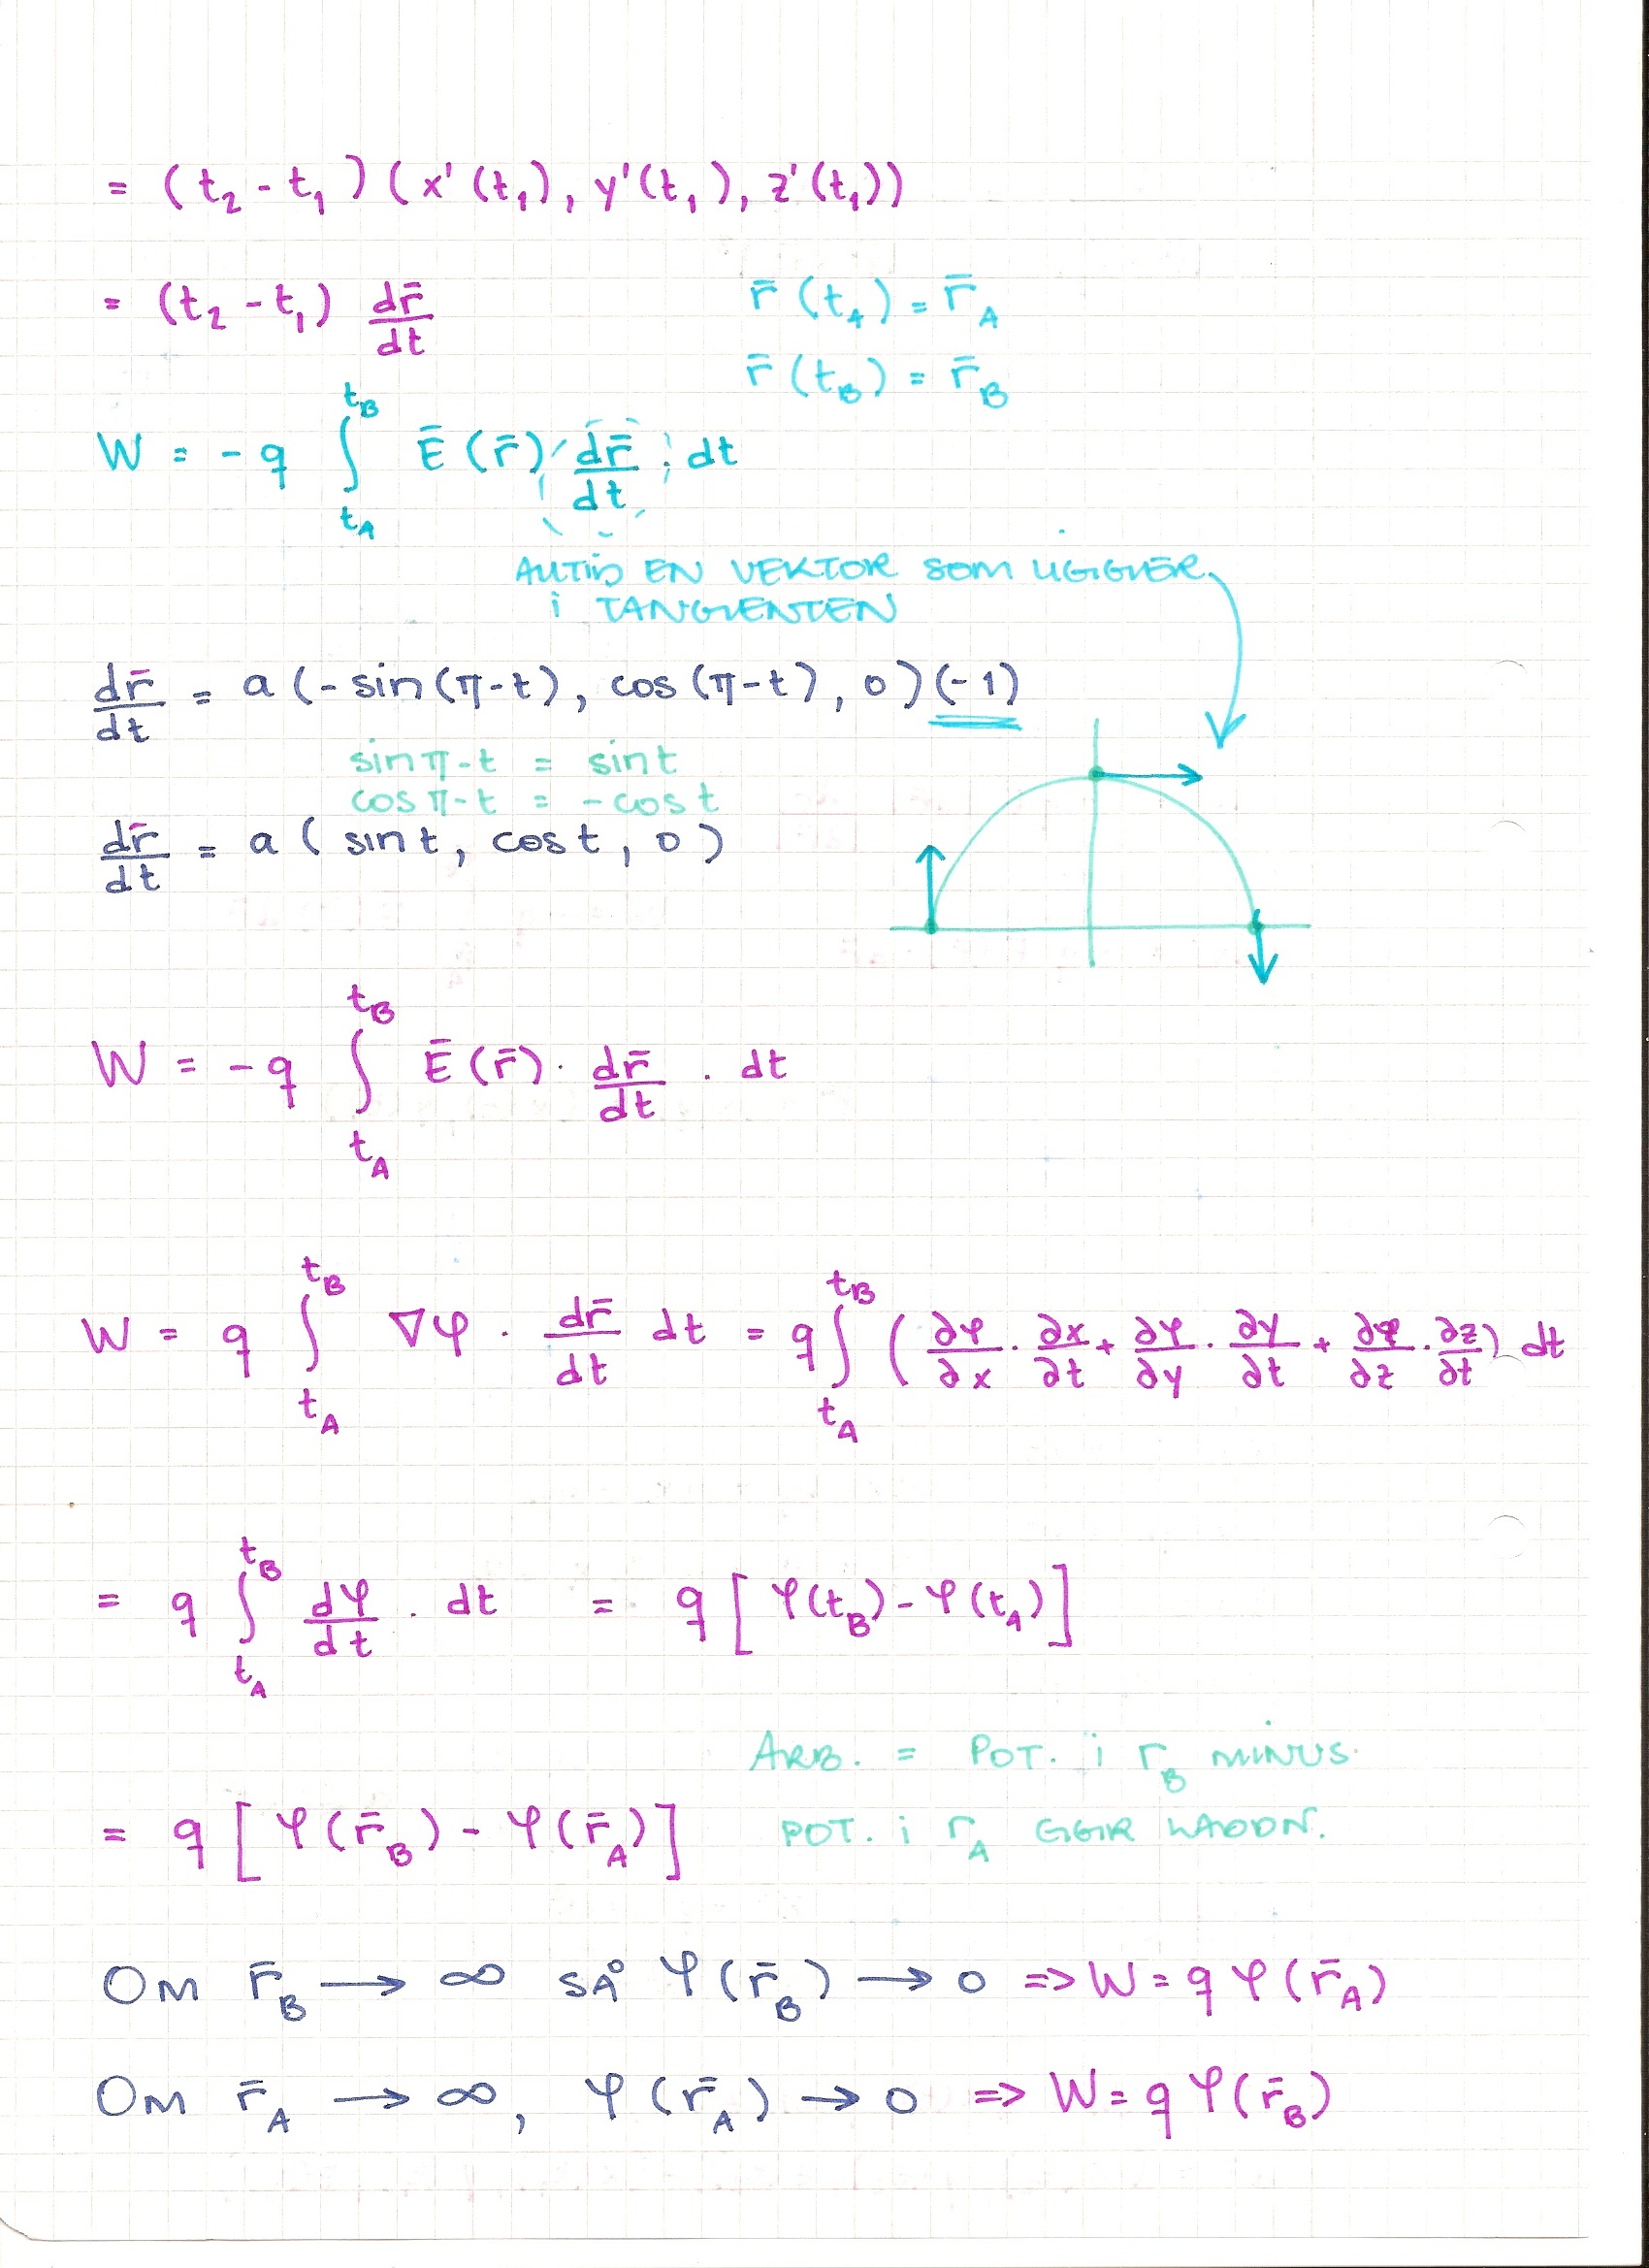 = (t₂ - t₁) (x'(t₁), y'(t₁), z'(t₁))
= (t₂ - t₁) dr̄/dt
r̄(t_A) = r̄_A
r̄(t_B) = r̄_B
W = -q ∫_{t_A}^{t_B} Ē(r̄) · dr̄/dt · dt
ALLTID EN VEKTOR SOM LIGGER
i TANGENTEN
dr̄/dt = a(-sin(π-t), cos(π-t), 0)(-1)
sin π-t = sin t
cos π-t = -cos t
dr̄/dt = a(sin t, cos t, 0)
W = -q ∫_{t_A}^{t_B} Ē(r̄) · dr̄/dt · dt
W = q ∫_{t_A}^{t_B} ∇φ · dr̄/dt dt = q ∫_{t_A}^{t_B} (∂φ/∂x · ∂x/∂t + ∂φ/∂y · ∂y/∂t + ∂φ/∂z · ∂z/∂t) dt
= q ∫_{t_A}^{t_B} dφ/dt · dt = q [φ(t_B) - φ(t_A)]
ARB. = POT. i r_B MINUS
= q [φ(r̄_B) - φ(r̄_A)]
POT. i r_A GGR LADDN.
OM r̄_B → ∞ SÅ φ(r̄_B) → 0 => W = q φ(r̄_A)
OM r̄_A → ∞, φ(r̄_A) → 0 => W = q φ(r̄_B)